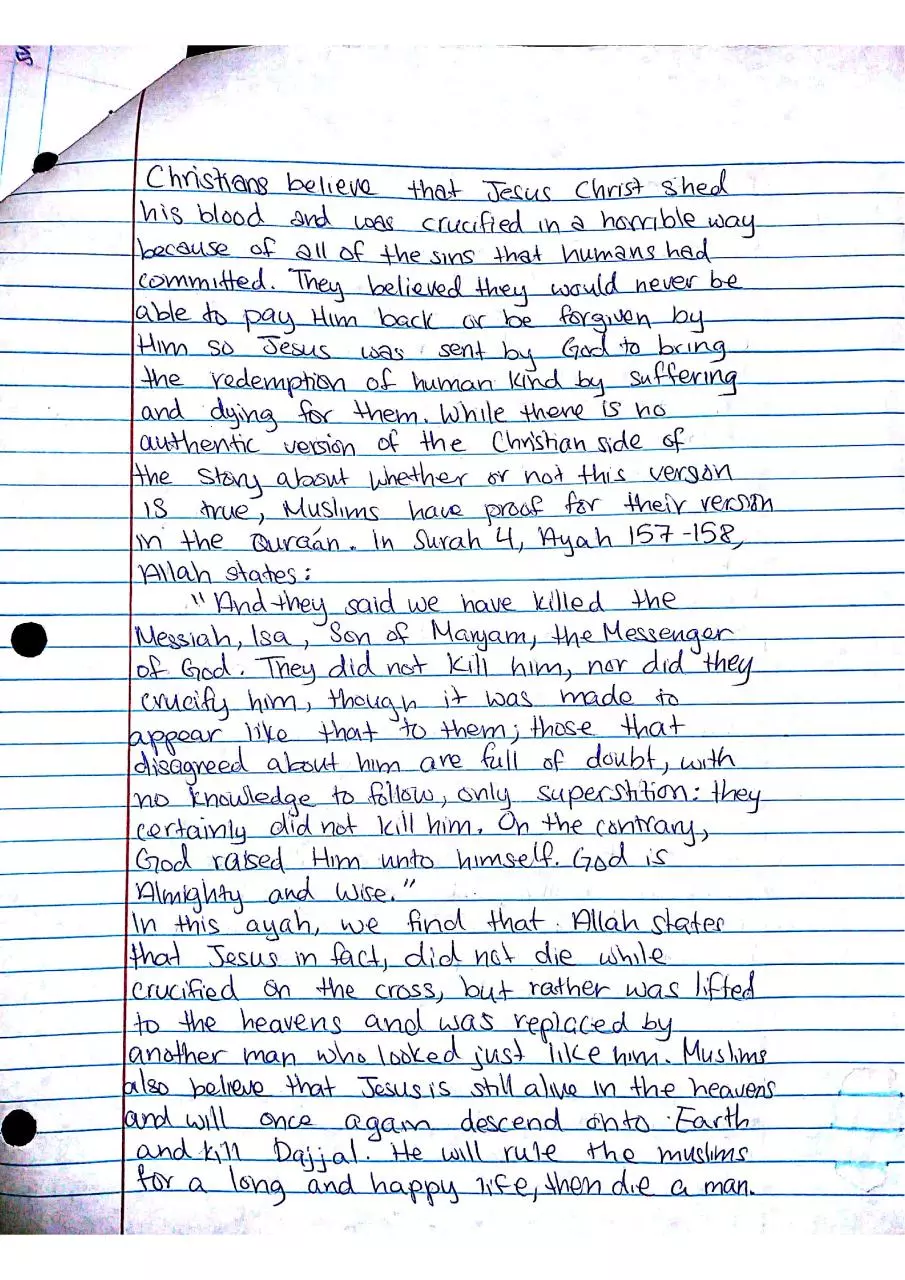 Christians believe that Jesus Christ shed
his blood and was crucified in a horrible way
because of all of the sins that humans had
committed. They believed they would never be
able to pay Him back or be forgiven by
Him so Jesus was sent by God to bring
the redemption of human kind by suffering
and dying for them. While there is no
authentic version of the Christian side of
the story about whether or not this verson
is true, Muslims have proof for their version
in the Quraán. In Surah 4, Ayah 157-158,
Allah states:
"And they said we have killed the
Messiah, Isa, Son of Maryam, the Messenger
of God. They did not kill him, nor did they
crucify him, though it was made to
appear like that to them; those that
disagreed about him are full of doubt, with
no knowledge to follow, only superstition: they
certainly did not kill him. On the contrary,
God raised Him unto himself. God is
Almighty and Wise."
In this ayah, we find that Allah states
that Jesus in fact, did not die while
crucified on the cross, but rather was lifted
to the heavens and was replaced by
another man who looked just like him. Muslims
also believe that Jesus is still alive in the heavens
and will once again descend onto Earth
and kill Dajjal. He will rule the muslims
for a long and happy life, then die a man.